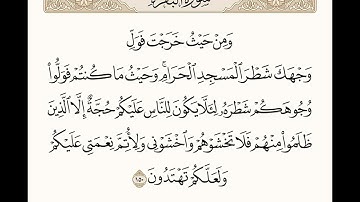 سورة البقرة
وَمِنْ حَيْثُ خَرَجْتَ فَوَلِّ
وَجْهَكَ شَطْرَ الْمَسْجِدِ الْحَرَامِ ۚ وَحَيْثُ مَا كُنتُمْ فَوَلُّوا
وُجُوهَكُمْ شَطْرَهُ لِئَلَّا يَكُونَ لِلنَّاسِ عَلَيْكُمْ حُجَّةٌ إِلَّا الَّذِينَ
ظَلَمُوا مِنْهُمْ فَلَا تَخْشَوْهُمْ وَاخْشَوْنِي وَلِأُتِمَّ نِعْمَتِي عَلَيْكُمْ
وَلَعَلَّكُمْ تَهْتَدُونَ ١٥٠